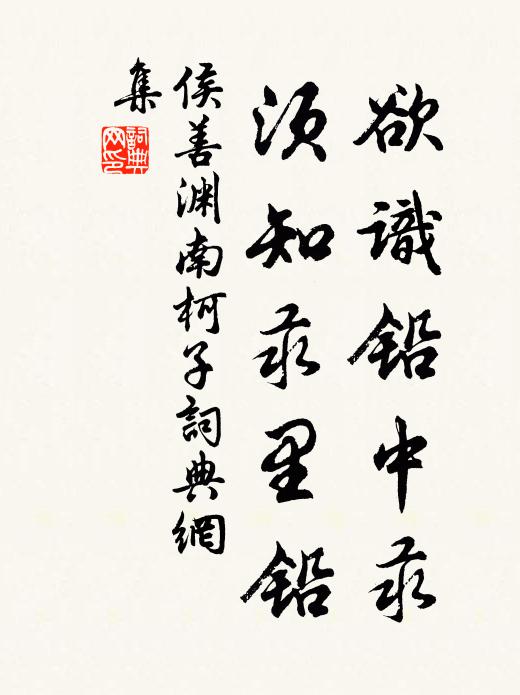 欲識鉛中汞
須知汞里鉛
侯善淵南柯子詞典網
集
詞典
网印